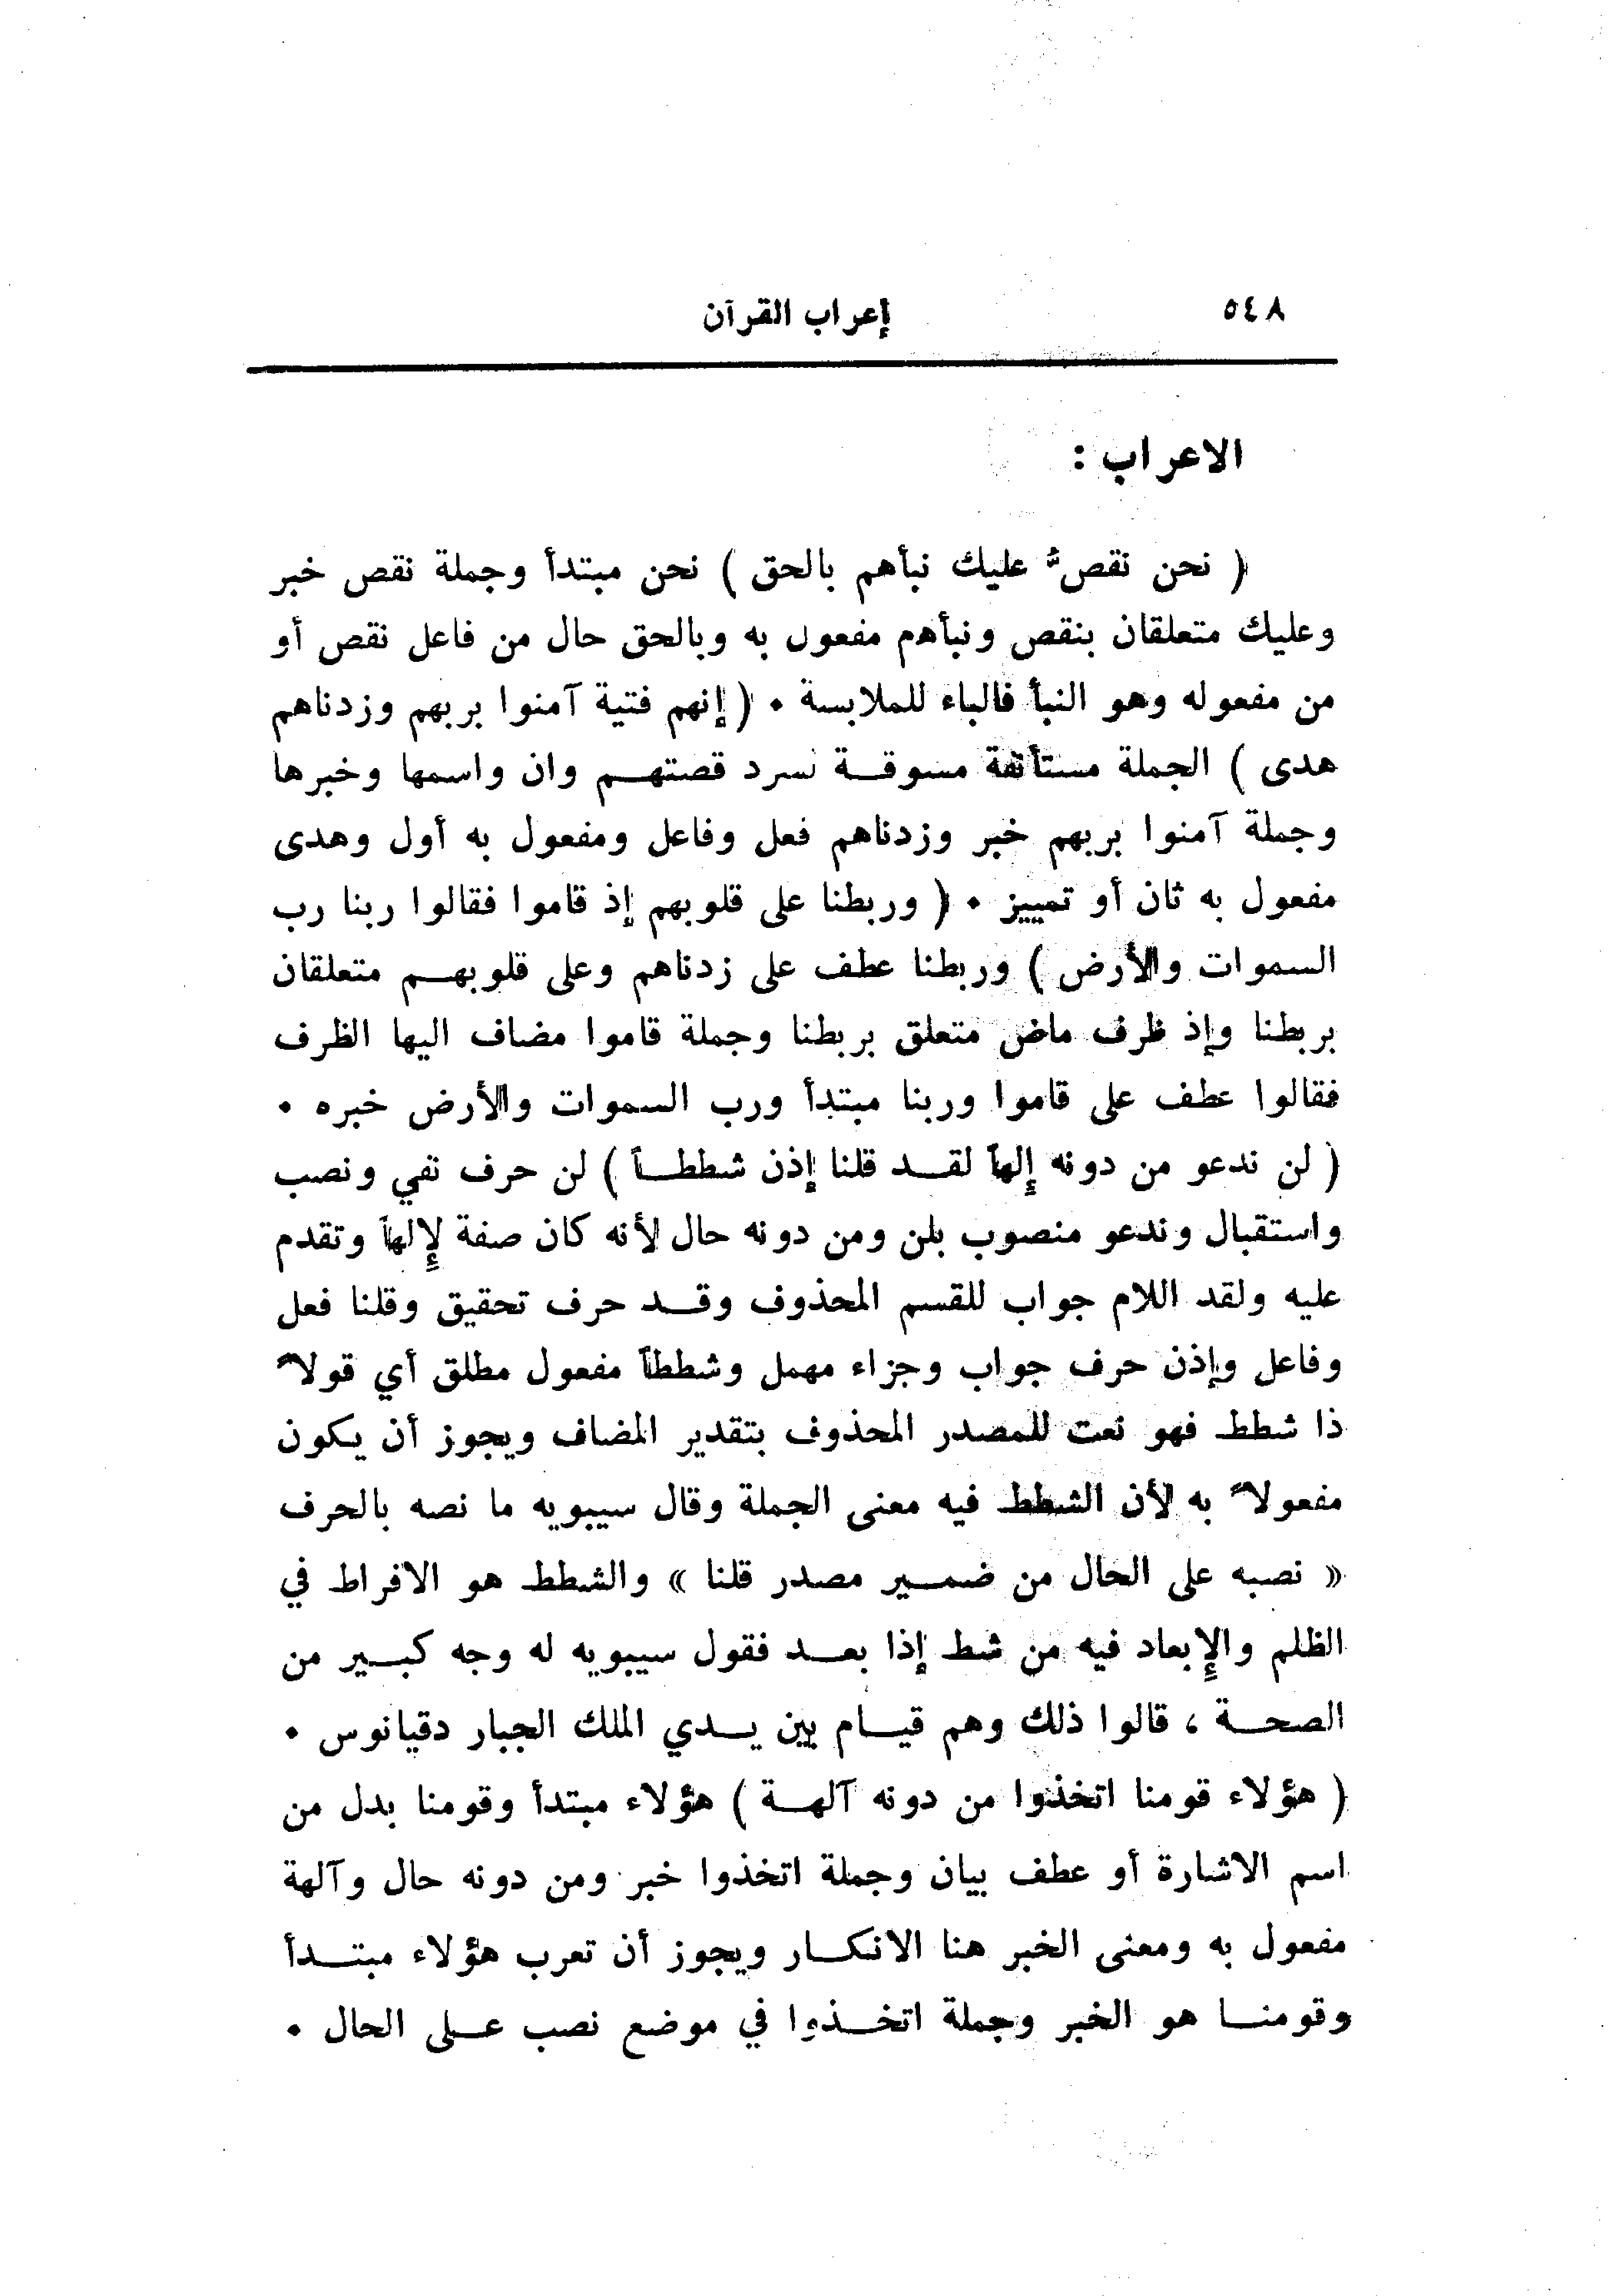 ٥٤٨ إعراب القرآن
الاعراب :
( نحن نقصُّ عليك نبأهم بالحق ) نحن مبتدأ وجملة نقص خبر
وعليك متعلقان بنقص ونبأهم مفعول به وبالحق حال من فاعل نقص أو
من مفعوله وهو النبأ فالباء للملابسة ٠ ( إنهم فتية آمنوا بربهم وزدناهم
هدى ) الجملة مستأنفة مسوقة لسرد قصتهم وان واسمها وخبرها
وجملة آمنوا بربهم خبر وزدناهم فعل وفاعل ومفعول به أول وهدى
مفعول به ثان أو تمييز ٠ ( وربطنا على قلوبهم إذ قاموا فقالوا ربنا رب
السموات والأرض ) وربطنا عطف على زدناهم وعلى قلوبهم متعلقان
بربطنا وإذ ظرف ماض متعلق بربطنا وجملة قاموا مضاف اليها الظرف
فقالوا عطف على قاموا وربنا مبتدأ ورب السموات والأرض خبره ٠
( لن ندعو من دونه إلهاً لقد قلنا إذن شططاً ) لن حرف نفي ونصب
واستقبال وندعو منصوب بلن ومن دونه حال لأنه كان صفة لإلهاً وتقدم
عليه ولقد اللام جواب للقسم المحذوف وقد حرف تحقيق وقلنا فعل
وفاعل وإذن حرف جواب وجزاء مهمل وشططاً مفعول مطلق أي قولاً
ذا شطط فهو نعت للمصدر المحذوف بتقدير المضاف ويجوز أن يكون
مفعولاً به لأن الشطط فيه معنى الجملة وقال سيبويه ما نصه بالحرف
« نصبه على الحال من ضمير مصدر قلنا » والشطط هو الافراط في
الظلم والإبعاد فيه من شط إذا بعد فقول سيبويه له وجه كبير من
الصحة ، قالوا ذلك وهم قيام بين يدي الملك الجبار دقيانوس ٠
( هؤلاء قومنا اتخذوا من دونه آلهة ) هؤلاء مبتدأ وقومنا بدل من
اسم الاشارة أو عطف بيان وجملة اتخذوا خبر ومن دونه حال وآلهة
مفعول به ومعنى الخبر هنا الانكار ويجوز أن تعرب هؤلاء مبتدأ
وقومنا هو الخبر وجملة اتخذوا في موضع نصب على الحال ٠